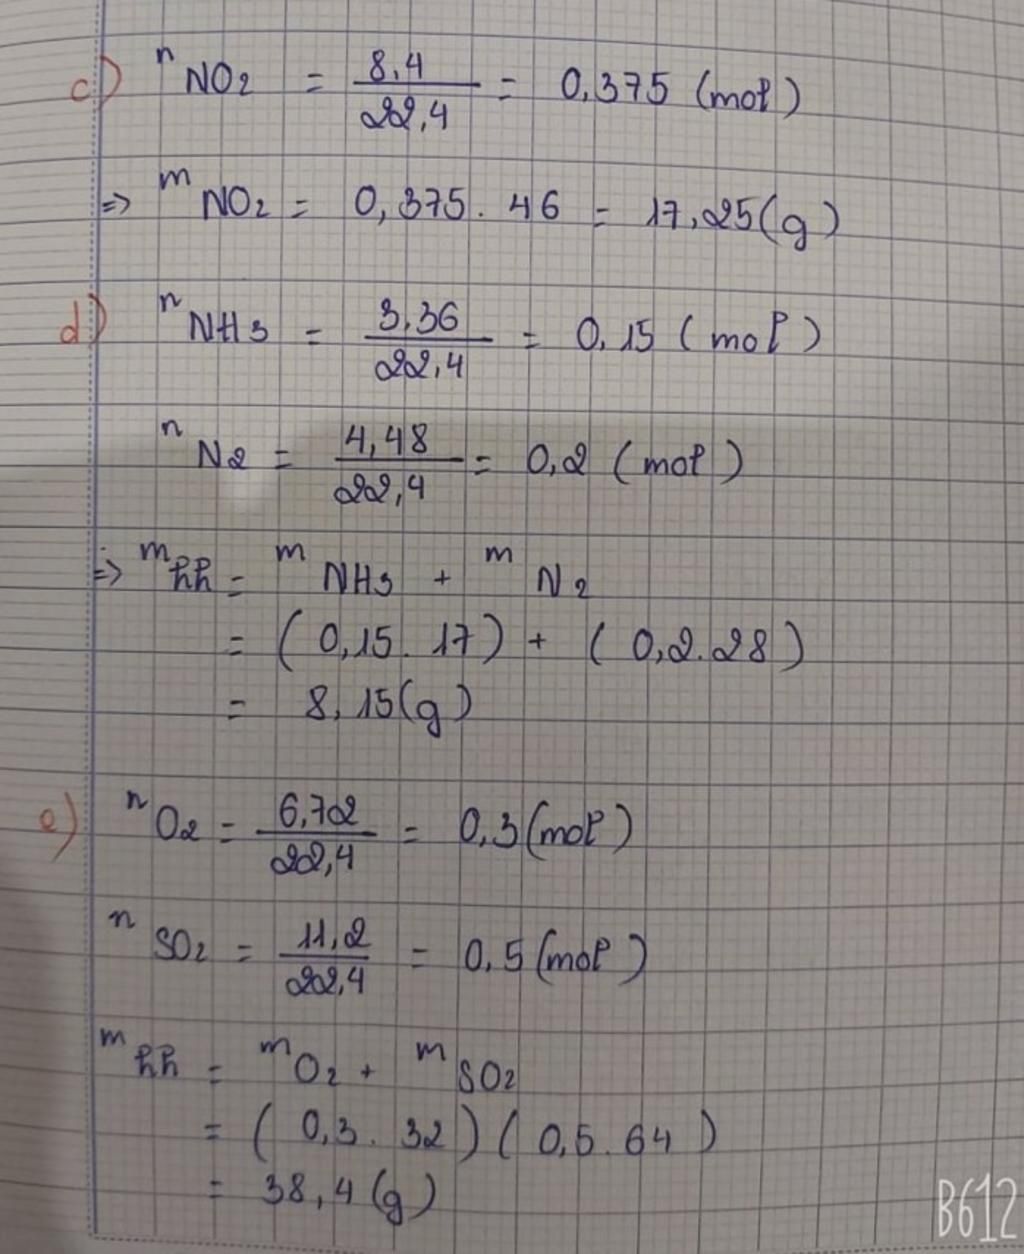 c) nNO2 = 8,4/22,4 = 0,375 (mol)
=> mNO2 = 0,375. 46 = 17,25(g)
d) nNH3 = 3,36/22,4 = 0,15 (mol)
nN2 = 4,48/22,4 = 0,2 (mol)
=> mhh = mNH3 + mN2
= (0,15. 17) + (0,2.28)
= 8,15(g)
e) nO2 = 6,72/22,4 = 0,3(mol)
nSO2 = 11,2/22,4 = 0,5(mol)
mhh = mO2 + mSO2
= (0,3. 32)(0,5.64)
= 38,4(g)
B612